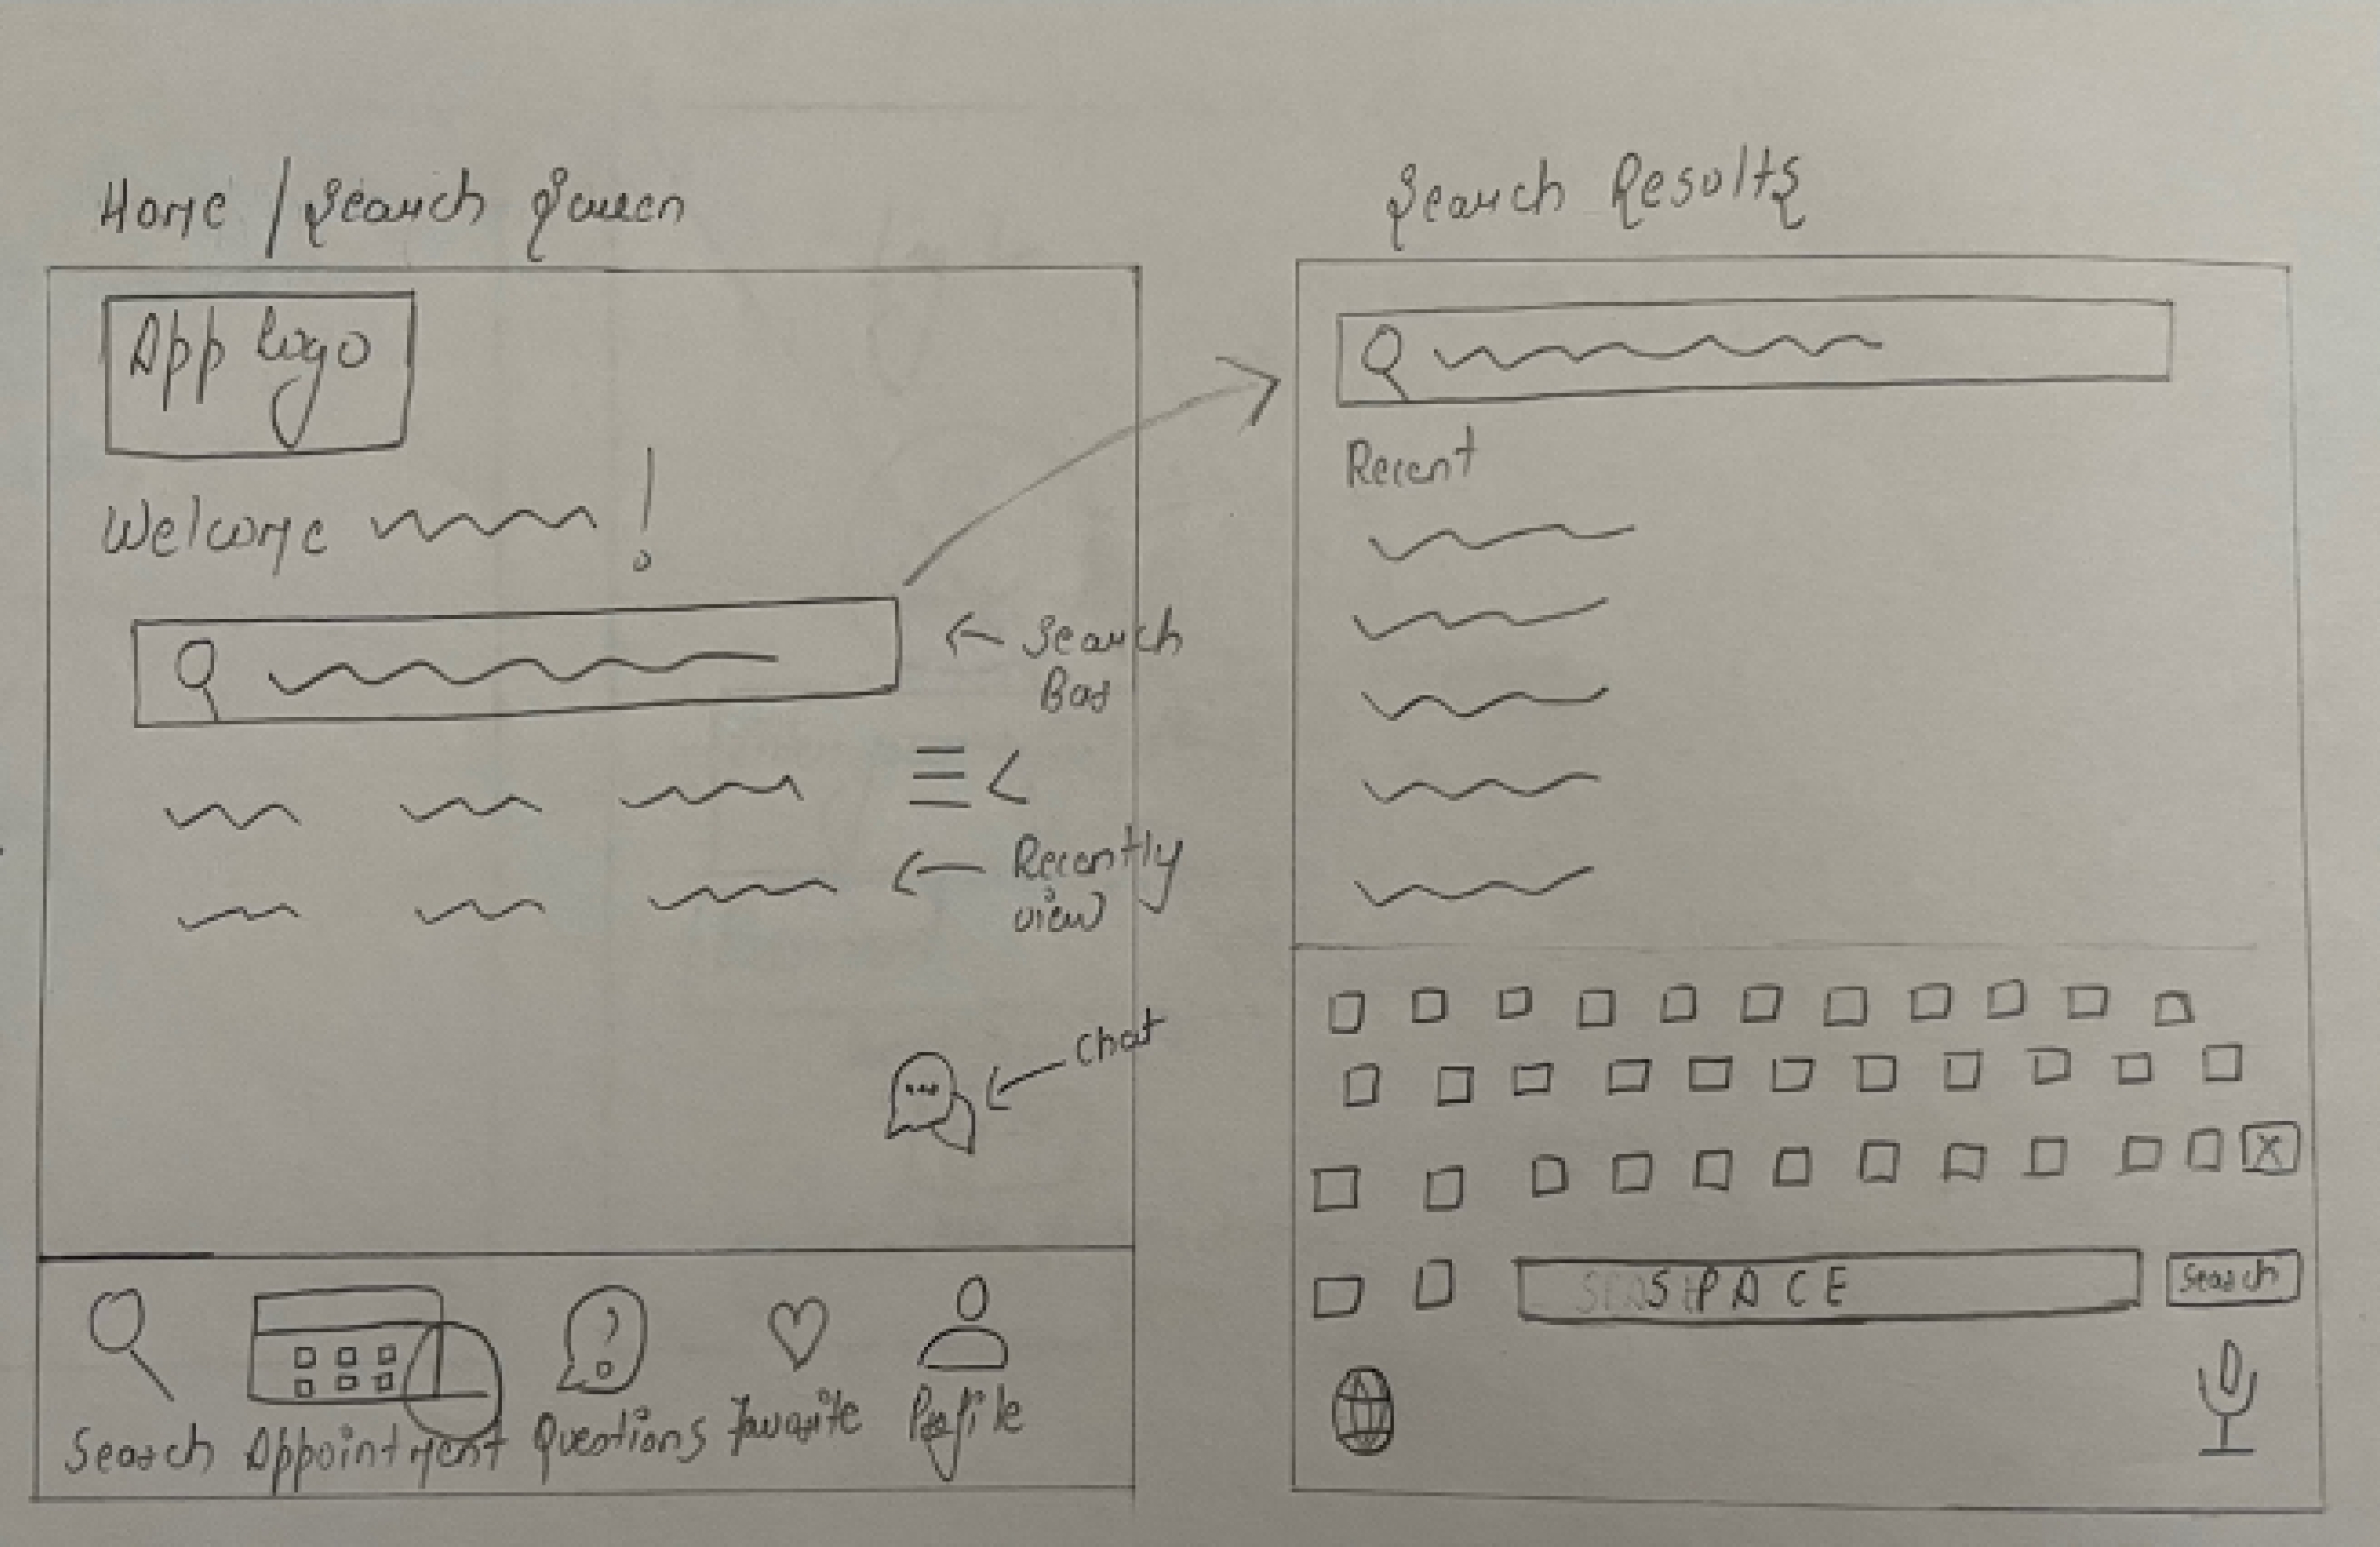 Home / Search Screen
App logo
Welcome !
Search
Bar
Recently
view
Chat
Search Appointment Questions Favorite Profile
Search Results
Recent
X
SPACE
Search